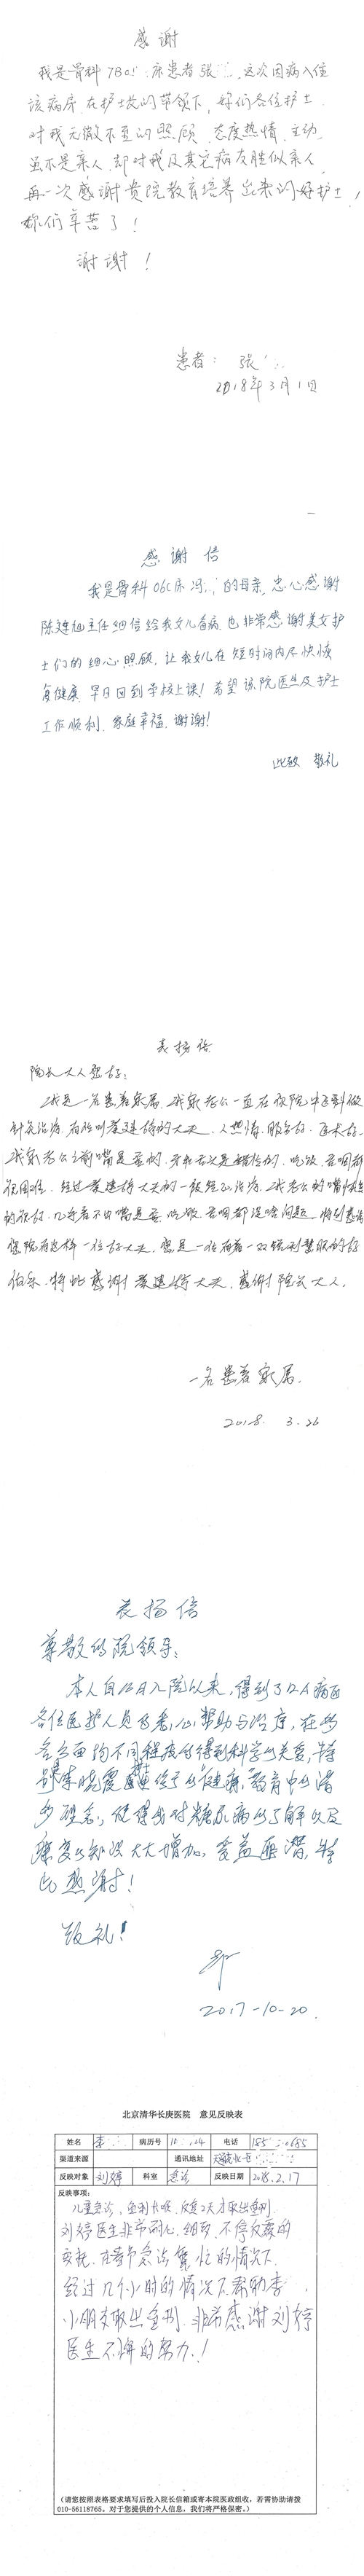 感谢
我是骨科7B0 床患者张 ,这次因病入住
该病房,在护士长的带领下,好们各位护士
对我无微不至的照顾,态度热情,主动,
虽不是亲人,却对我及其它病友胜似亲人,
再一次感谢贵院教育培养出来的好护士!
你们辛苦了!
谢谢!
患者: 张
2018年3月1日
感谢信
我是骨科06C床冯 的母亲,忠心感谢
主任细信给我女儿看病,也非常感谢美女护
士们的细心照顾,让我女儿在短时间内尽快恢
复健康,早日回到学校上课!希望该院医生及护士
工作顺利,家庭幸福,谢谢!
此致 敬礼
表扬信
院长大人您好:
我是一名患者家属,我家老公一直在您院中医科做
针灸治疗,有位叫 大夫,人热情,服务好,医术好,
我家老公之前嘴是歪的, 吃饭,
很困难,经过 大夫的一段经心治疗,我老公的嘴恢复
的很好,几乎看不出嘴是歪,吃饭, 都没啥问题,特别感谢
您院有这样一位好大夫,您是一位有着一双 慧眼的好
伯乐,特此感谢 大夫,感谢院长大人。
一名患者家属
2018. 3.26
表扬信
尊敬的院领导:
本人自 日入院以来,得到了12A病区
各位医护人员的悉心帮助与治疗,在
各方面均不同程度的得到科学的关爱,特
别是李晓霞 给予的健康教育中的
,使得我对糖尿病的了解以及
知识大大增加,受益匪浅,特
此热谢!
敬礼!
2017-10-20.
北京清华长庚医院 意见反映表
姓名 李 病历号 电话 185 0685
渠道来源 通讯地址
反映对象 刘婷 科室 急诊 反映日期 2018.2.17
反映事项:
儿童急诊,
刘婷医生非常耐心,细致,不停反覆的
安抚,在春节急诊繁忙的情况下,
经过几个小时的情况下帮助李
小朋友取出 ,非常感谢刘婷
医生不懈的努力!
(请您按照表格要求填写后投入院长信箱或寄本院医政组收,若需协助请拨
010-56118765。对于您提供的个人信息,我们将严格保密。)